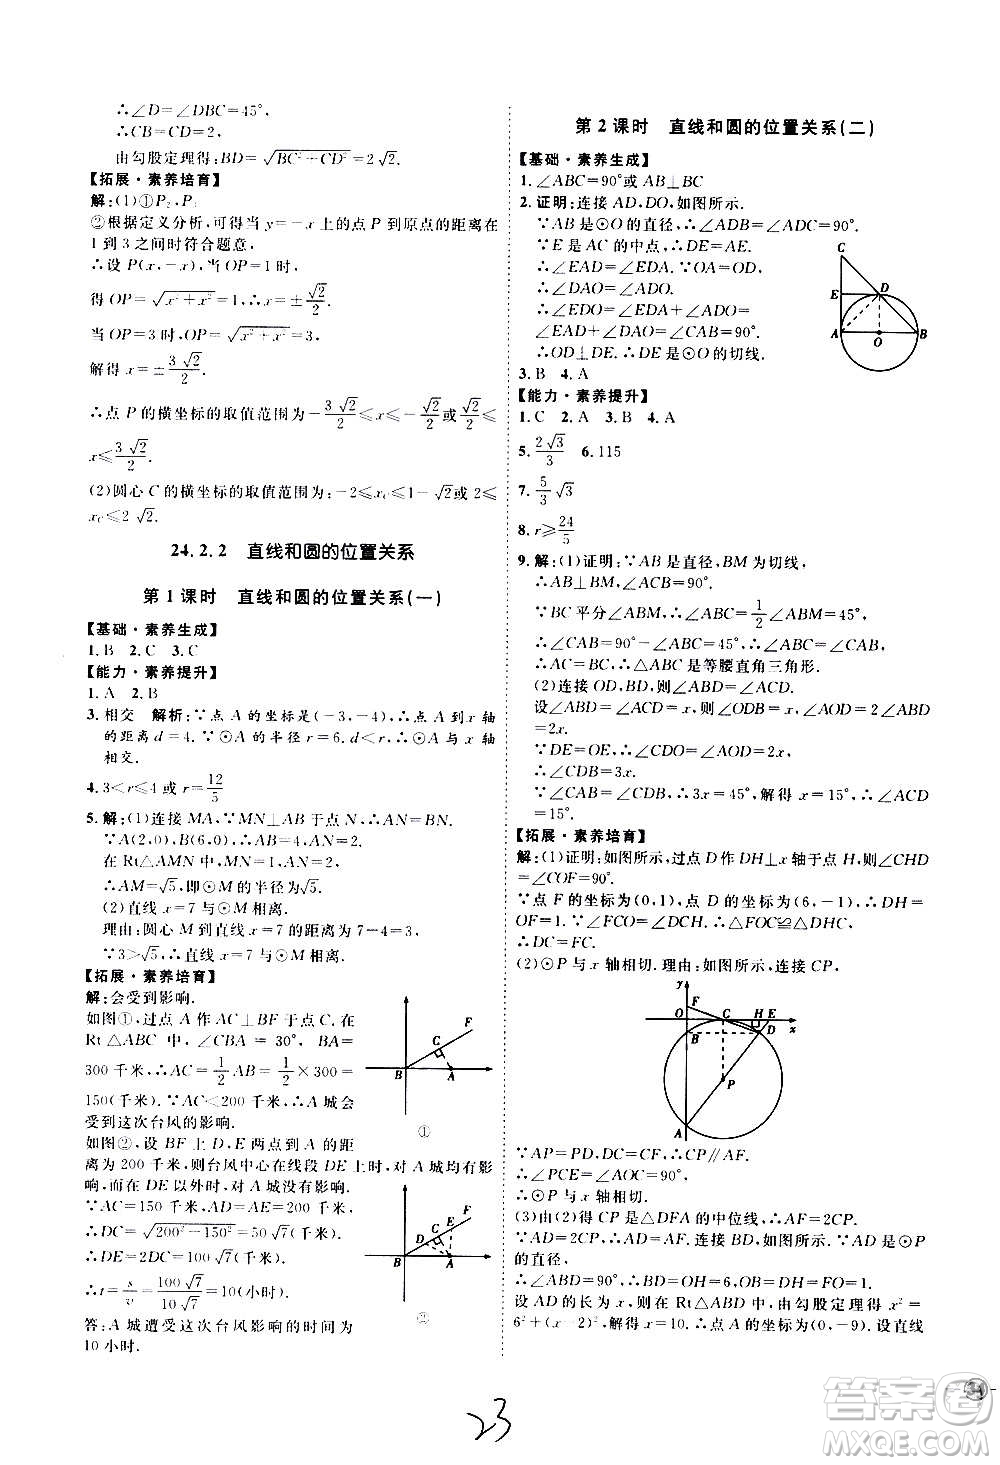 ∴∠D=∠DBC=45°,
∴CB=CD=2,
由勾股定理得:BD=√(BC²-CD²)=2√2.
【拓展·素养培育】
解:(1)①P₂,P₃
②根据定义分析,可得当y=-x上的点P到原点的距离在
1到3之间时符合题意.
∴设P(x,-x),当OP=1时,
得OP=√(x²+x²)=1,∴x=±√2/2.
当OP=3时,OP=√(x²+x²)=3,
解得x=±3√2/2.
∴点P的横坐标的取值范围为-3√2/2≤x≤-√2/2或√2/2≤
x≤3√2/2.
(2)圆心C的横坐标的取值范围为:-2≤x_C≤1-√2或2≤
x_C≤2√2.
24.2.2 直线和圆的位置关系
第1课时 直线和圆的位置关系(一)
【基础·素养生成】
1.B 2.C 3.C
【能力·素养提升】
1.A 2.B
3.相交 解析:∵点A的坐标是(-3,-4),∴点A到x轴
的距离d=4.∵⊙A的半径r=6.d<r,∴⊙A与x轴
相交.
4.3<r≤4或r=12/5
5.解:(1)连接MA,∵MN⊥AB于点N,∴AN=BN.
∵A(2,0),B(6,0),∴AB=4.∴AN=2.
在Rt△AMN中,
∴AM=√5,即⊙M的半径为√5.
(2)直线x=7与⊙M相离.
理由:圆心M到直线x=7的距离为7-4=3.
∵3>√5,∴直线x=7与⊙M相离.
【拓展·素养培育】
解:会受到影响.
如图①,过点A作AC⊥BF于点C.在
Rt△ABC中,∠CBA=30°,BA=
300千米,∴AC=1/2AB=1/2×300=
150(千米).∵AC<200千米,∴A城会
受到这次台风的影响.
如图②,设BF上D,E两点到A的距
离为200千米,则台风中心在线段DE上时,对A城均有影
响,而在DE以外时,对A城没有影响.
∵AC=150千米,AD=AE=200千米,
∴DC=√(200²-150²)=50√7(千米),
∴DE=2DC=100√7(千米).
∴t=s/v=100√7/10√7=10(小时).
答:A城遭受这次台风影响的时间为
10小时.
C
F
B
A
①
D
C
E
F
B
A
②
第2课时 直线和圆的位置关系(二)
【基础·素养生成】
1.∠ABC=90°或AB⊥BC
2.证明:连接AD,DO,如图所示.
∵AB是⊙O的直径,∴∠ADB=∠ADC=90°.
∵E是AC的中点,∴DE=AE.
∴∠EAD=∠EDA.∵OA=OD,
∴∠DAO=∠ADO.
∴∠EDO=∠EDA+∠ADO=
∠EAD+∠DAO=∠CAB=90°.
∴OD⊥DE.∴DE是⊙O的切线.
C
E
D
A
O
B
3.B 4.A
【能力·素养提升】
1.C 2.A 3.B 4.A
5.2√3/3 6.115
7.5/3√3
8.r≥24/5
9.解:(1)证明:∵AB是直径,BM为切线,
∴AB⊥BM,∠ACB=90°.
∵BC平分∠ABM,∴∠ABC=1/2∠ABM=45°,
∴∠CAB=90°-∠ABC=45°=∠ABC,
∴AC=BC,∴△ABC是等腰直角三角形.
(2)连接OD,BD,则∠ABD=∠ACD.
设∠ABD=∠ACD=x,则∠ODB=x,∠AOD=2∠ABD
=2x.
∵DE=OE,∴∠CDO=∠AOD=2x.
∴∠CDB=3x.
∵∠CDB=∠CAB=45°,∴3x=45°,解得x=15°,∠ACD
=15°.
【拓展·素养培育】
解:(1)证明:如图所示,过点D作DH⊥x轴于点H,则∠CHD
=∠COF=90°.
∵点F的坐标为(0,1),点D的坐标为(6,-1),∴DH=
OF=1.∵∠FCO=∠DCH,∴△FOC≌△DHC,
∴DC=FC.
(2)⊙P与x轴相切.理由:如图所示,连接CP,
y
F
O
C
H
E
x
B
D
P
A
∵AP=PD,DC=CF,∴CP∥AF.
∴∠PCE=∠AOC=90°.
∴⊙P与x轴相切.
(3)由(2)得CP是△DFA的中位线,∴AF=2CP.
∵AD=2CP,∴AD=AF.连接BD,如图所示,∵AD是⊙P
的直径,
∴∠ABD=90°,∴BD=OH=6,OB=DH=FO=1.
设AD的长为x,则在Rt△ABD中,由勾股定理得x²=
6²+(x-2)²,解得x=10.∴点A的坐标为(0,-9).设直线
23
答案圈
MXQE.COM